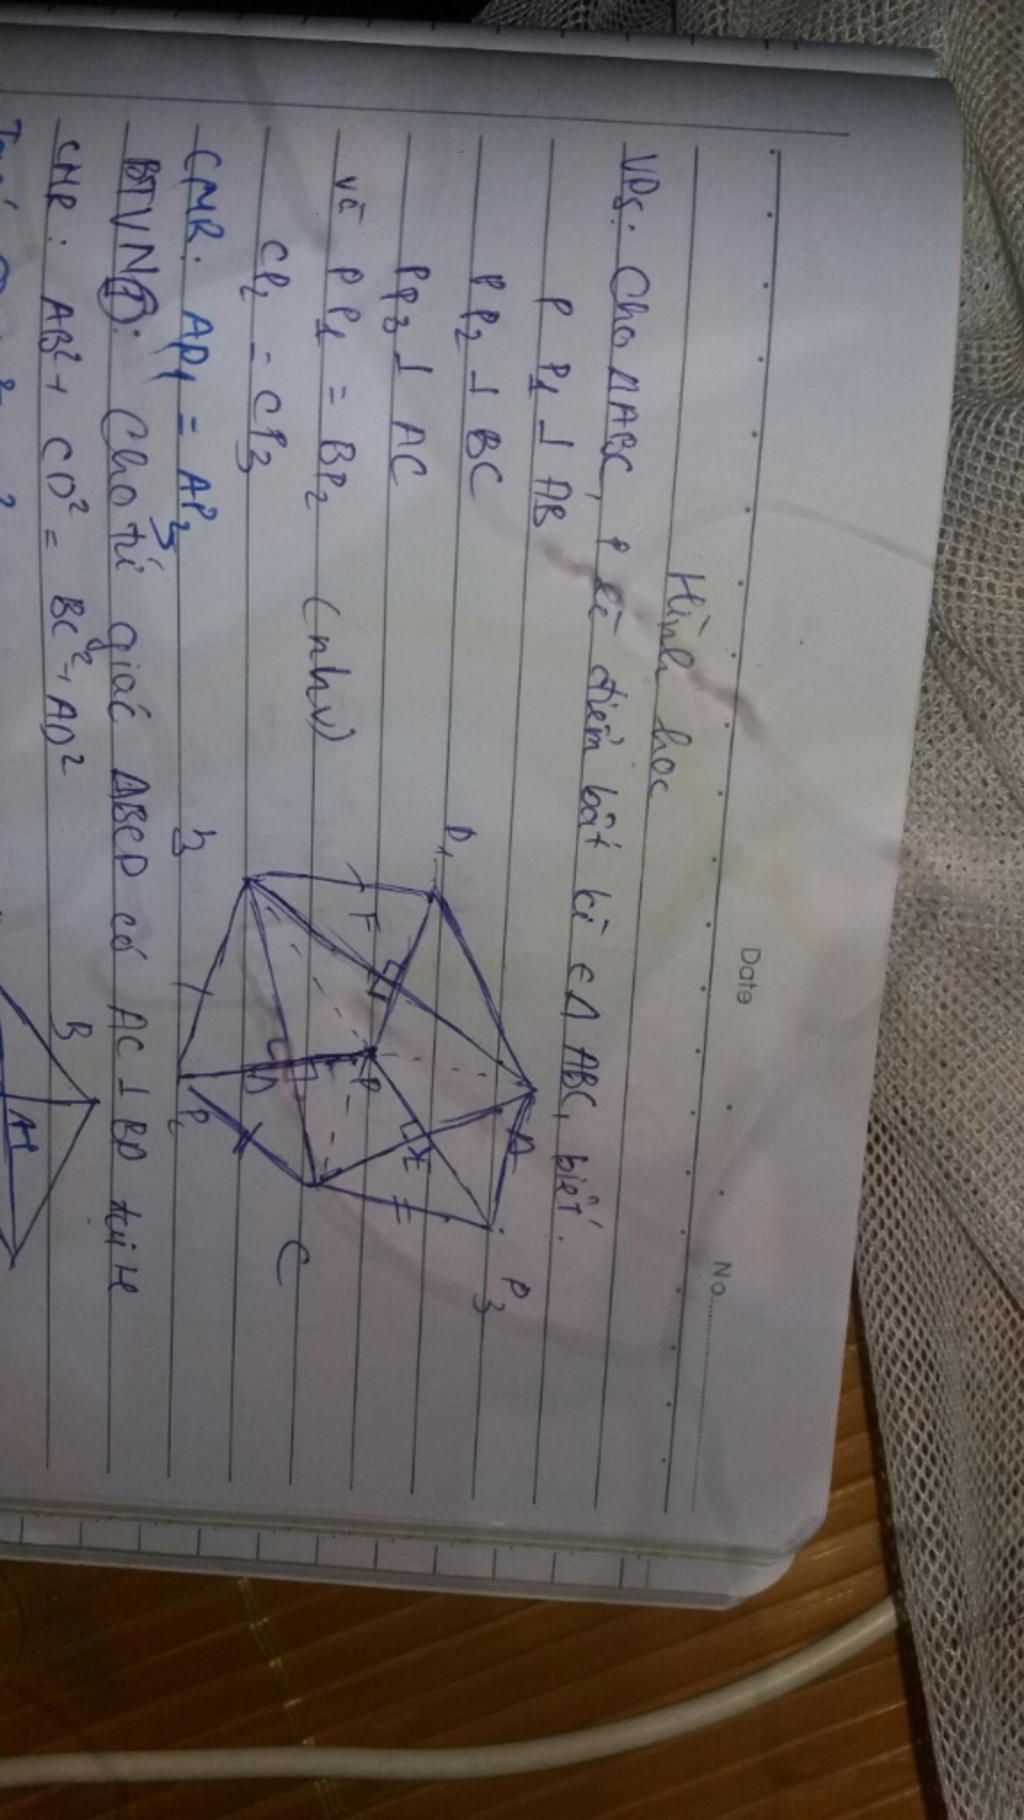 Date
No.
Hình học
VD5: Cho ΔABC, P là điểm bất kì ∈ Δ ABC, biết.
P P1 ⊥ AB
PP2 ⊥ BC
PP3 ⊥ AC
và PP1 = BP2 (nhv)
CP2 = CP3
CMR: AP1 = AP3
BTVN①: Cho tứ giác ABCD có AC ⊥ BD tại H
CMR: AB² + CD² = BC² + AD²
P1
A
P3
F
E
P
D
P2
C
B
H